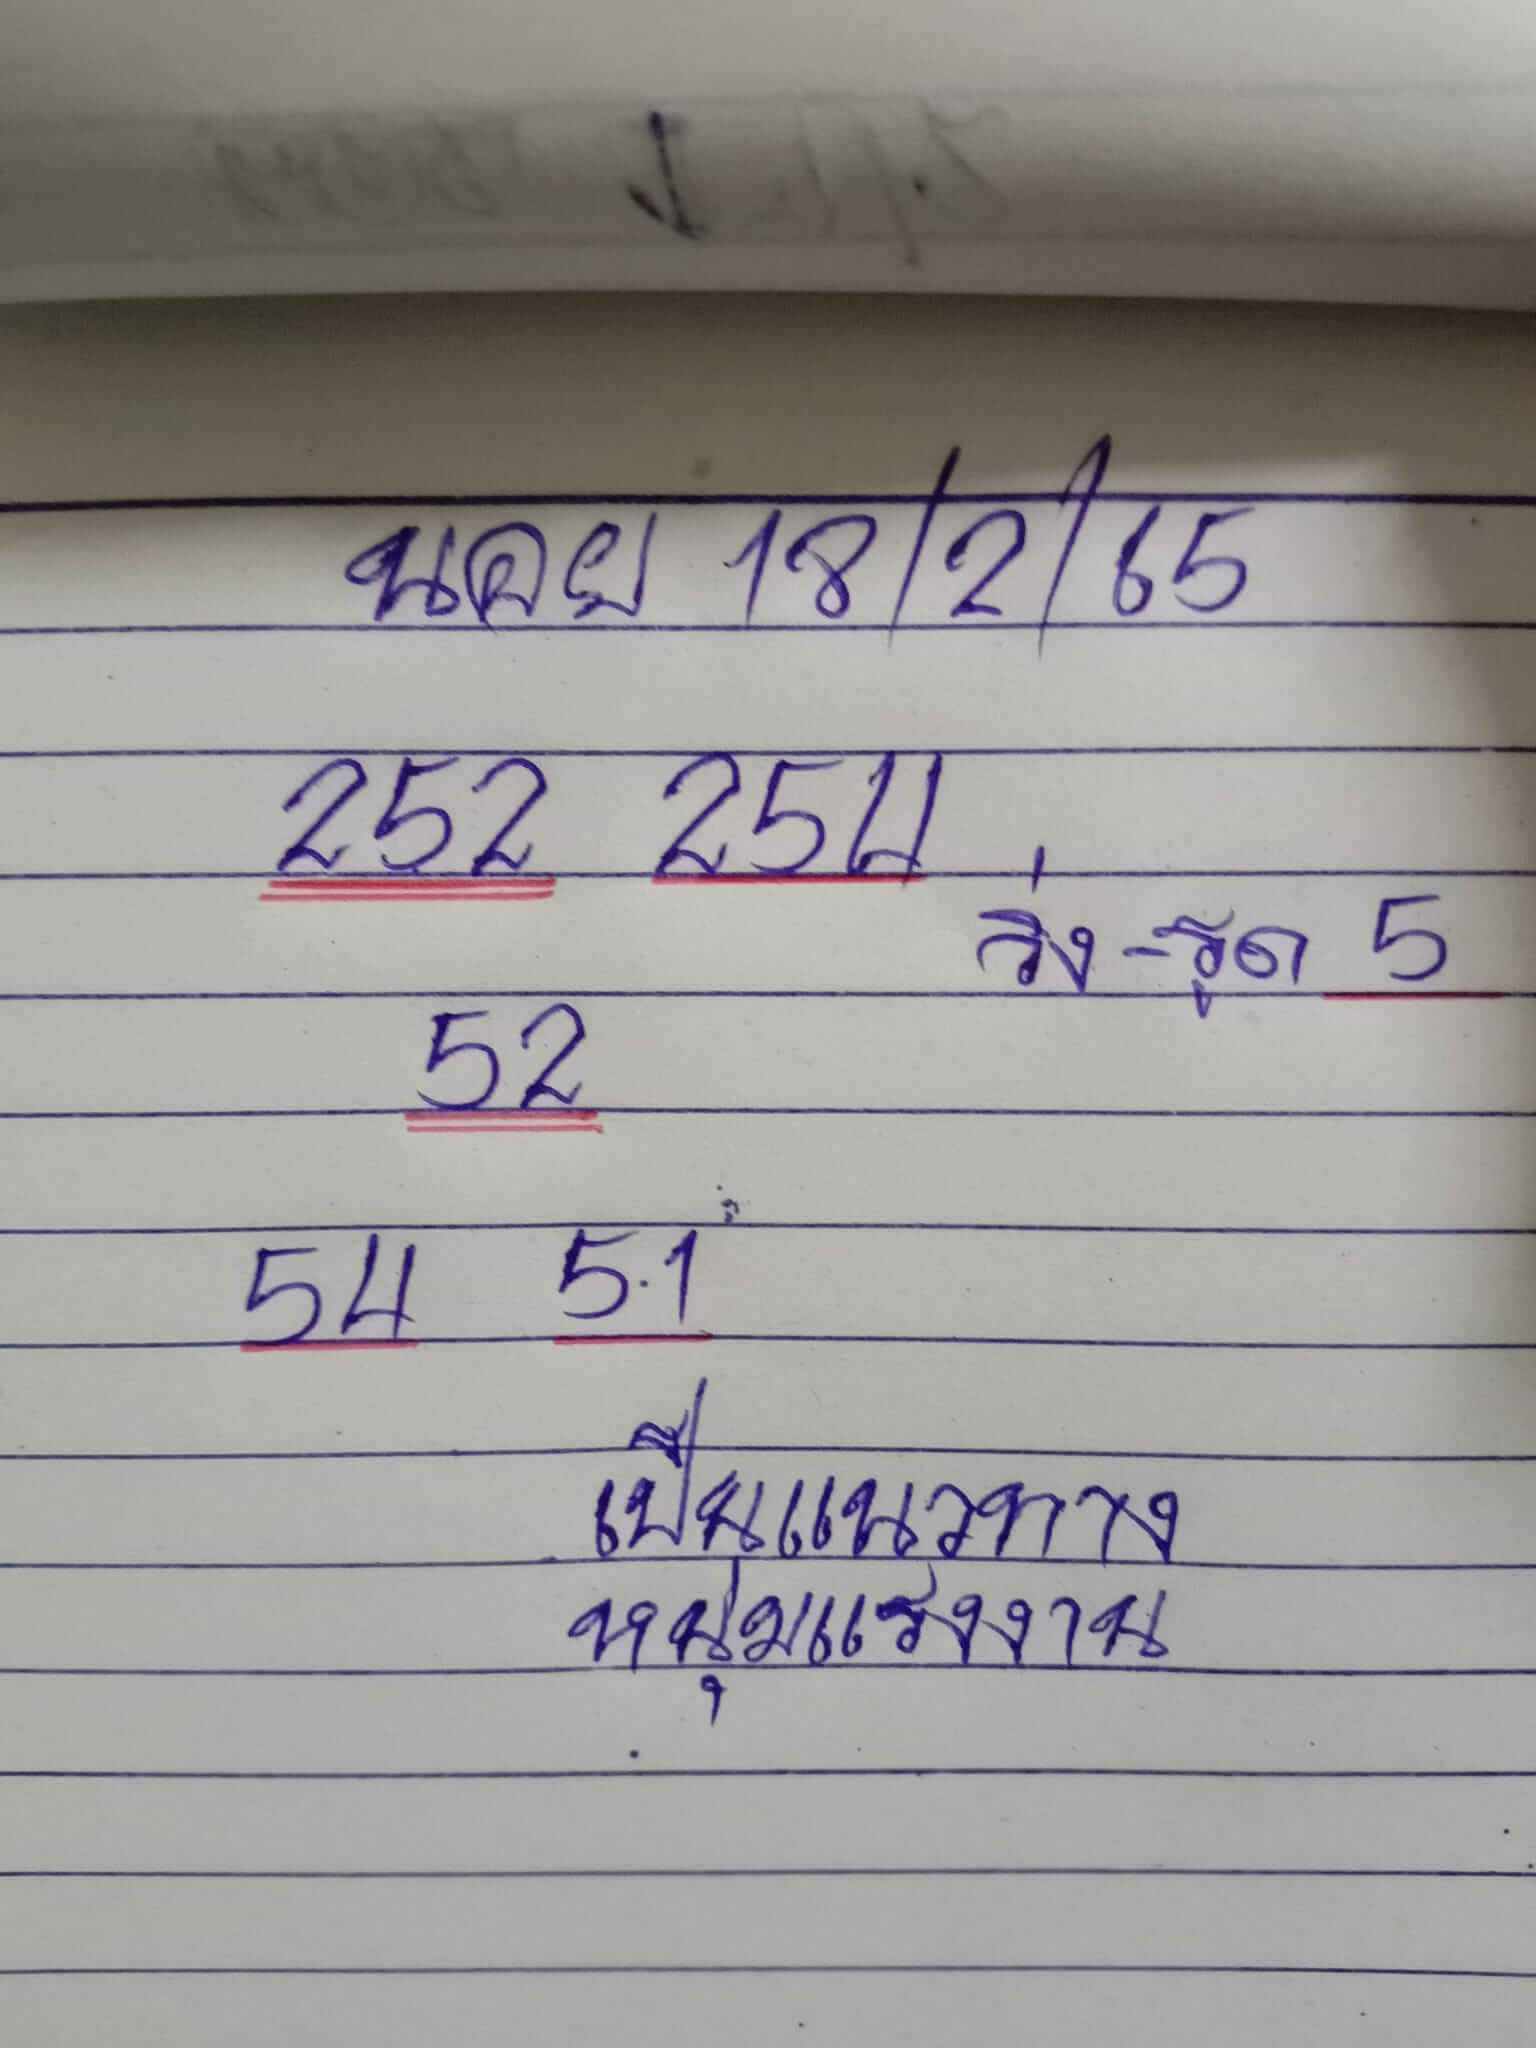 นอย 18/2/65
252 254
วิ่ง-รูด 5
52
54 5.1
เป็นแนวทาง
หนุ่มแรงงาน